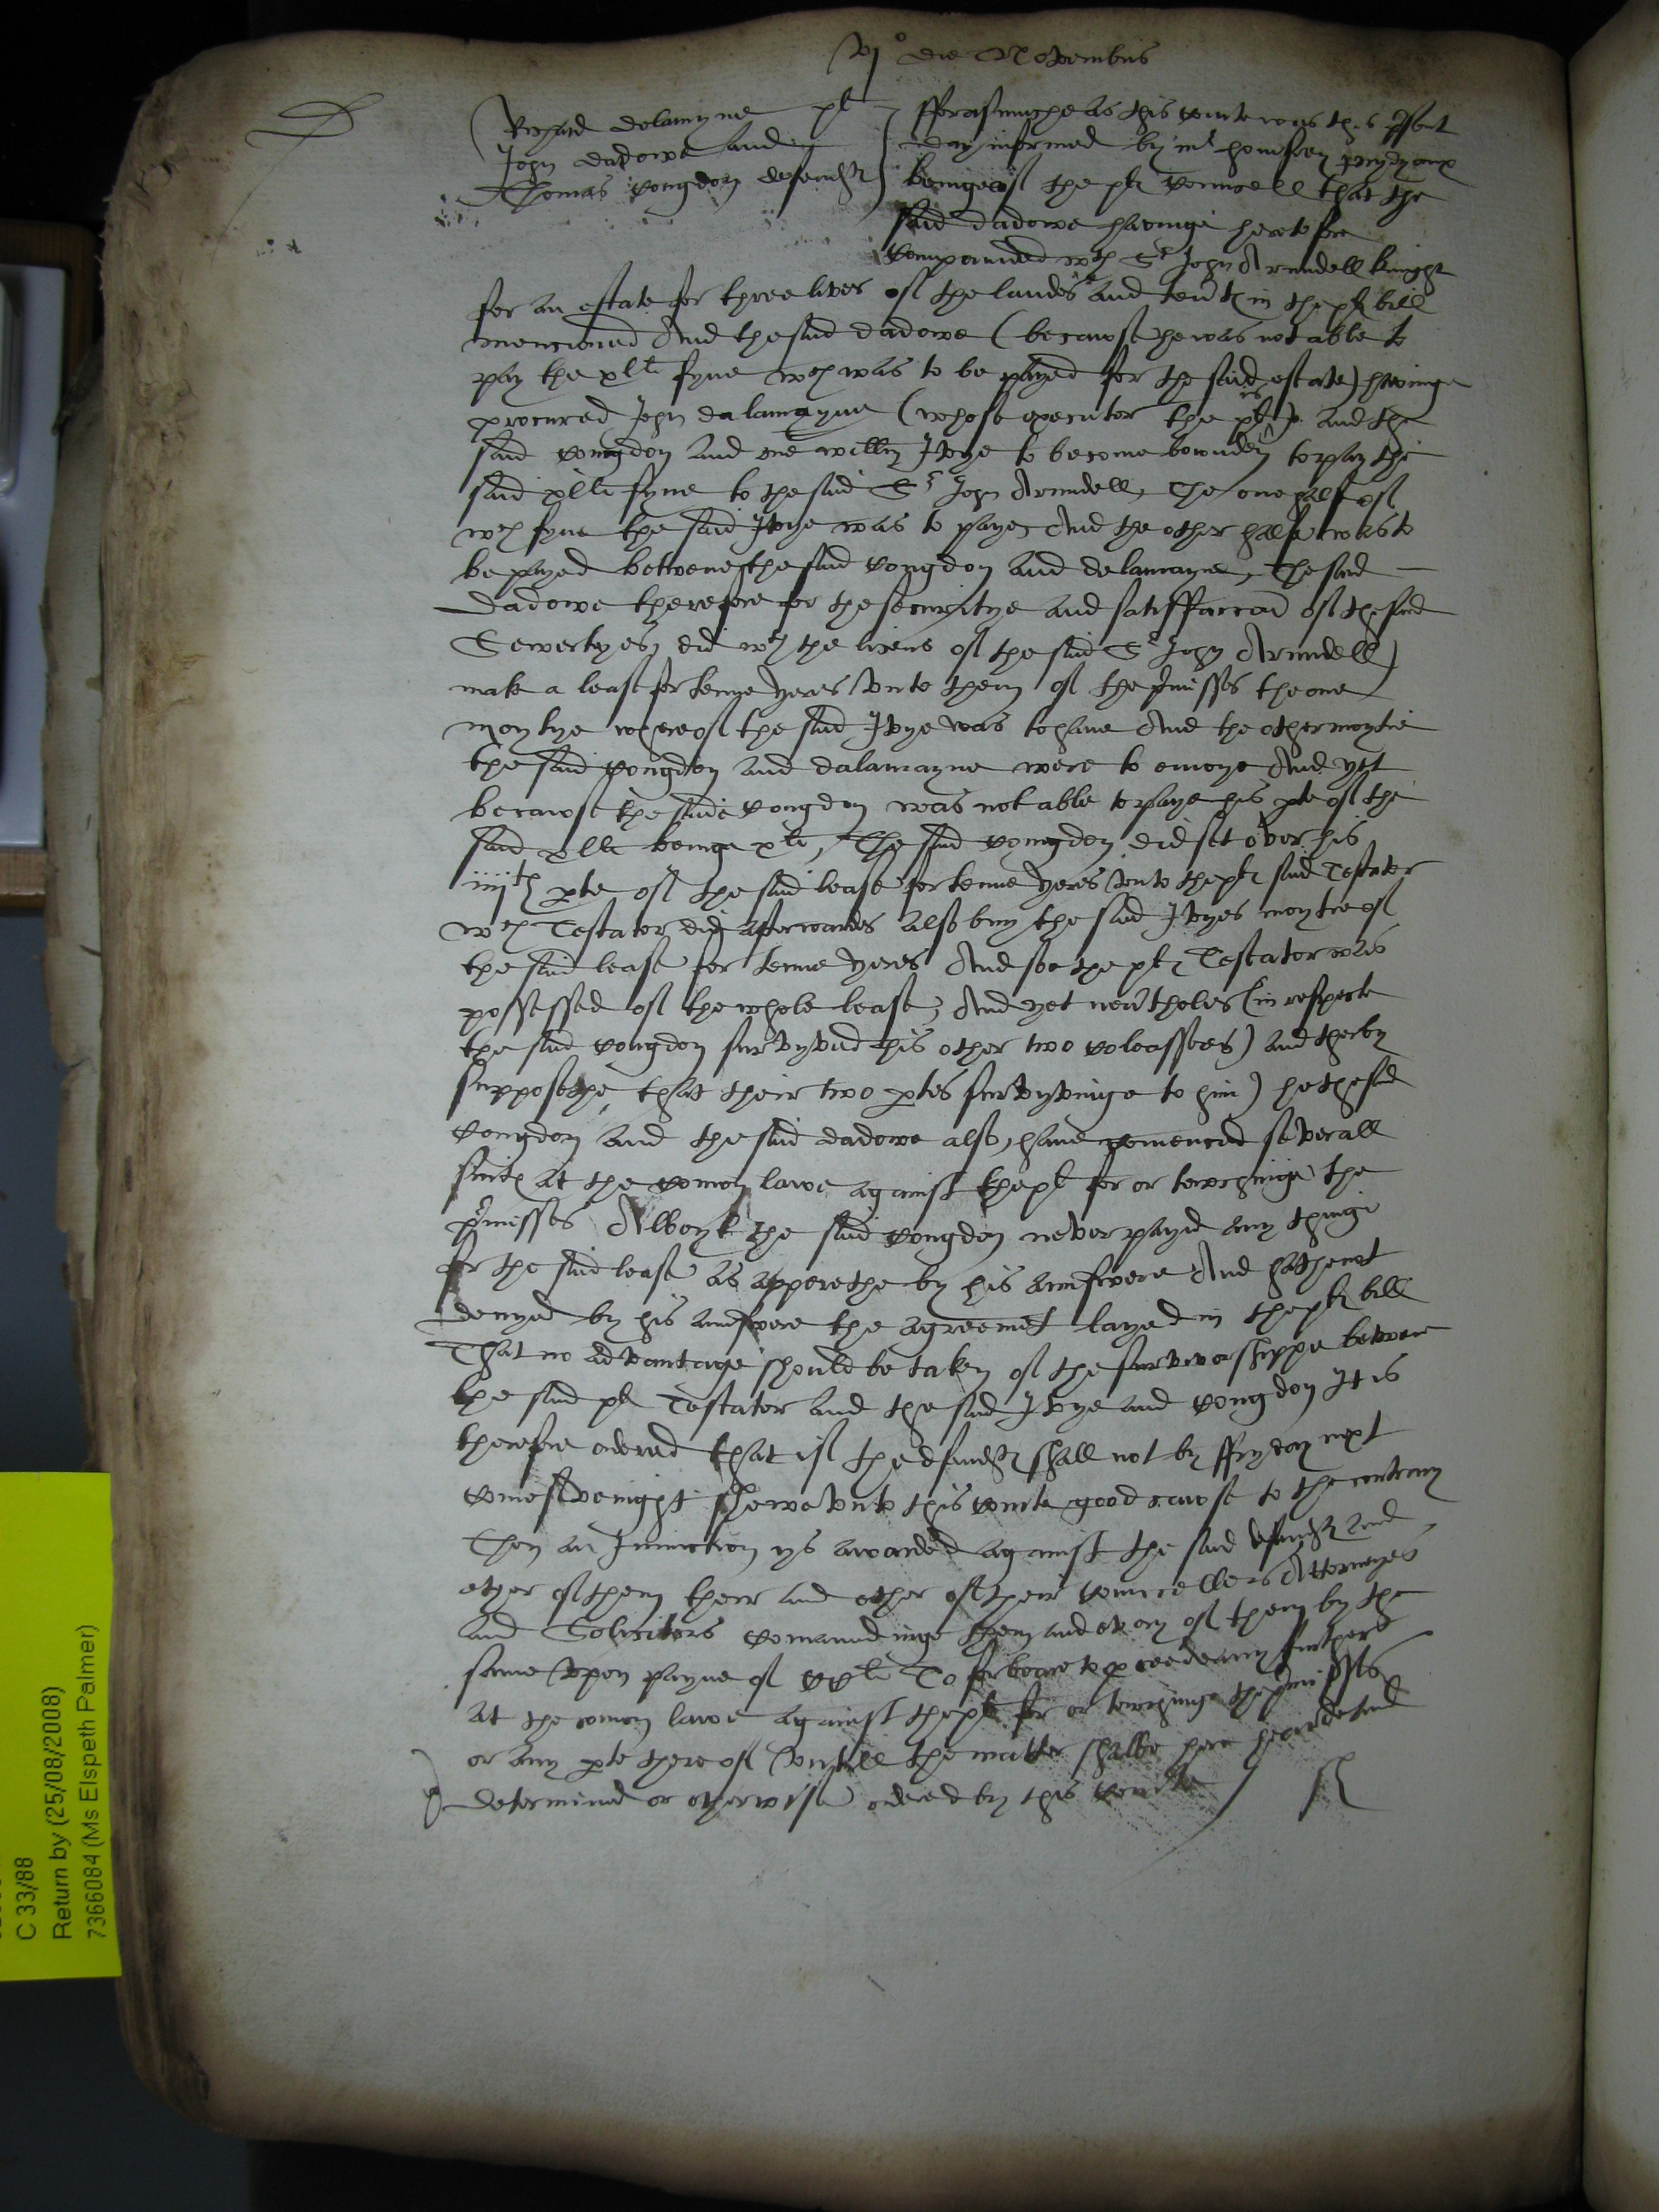 vj° die Novembris
D
Richard Delamayne pl
John dadowe and
Thomas Congdon defendtes
fforasmuche as this Courte was this psent
day informed by mr
beinge of the pl Counsell that the
said dadowe havinge heretofore
compounded wth Sr John Arundell knight
for an estate for three lives of the landes and tents in the pl bill
mencioned And the said dadowe (because he was not able to
pay the xlli fyne wch was to be payed for the said estate) havinge
procured John dalamayne (whose executor the pl is) and the
said Congdon and one willm Ivye to become bounden to pay the
said xlli fyne to the said Sr John Arundell, The one halfe of
wch fyne the said Ivye was to paye And the other halfe was to
be payed betwene the said Congdon and delamayne, The said
dadowe therefore for the securitye and satisffaccon of the said
Sewertyes, did wth the licens of the said Sr John Arundell
make a lease for tenne yeres unto them of the pmisses the one
moytye whereof the said Ivye was to have And the other moytie
the said Congdon and dalamayne were to enioye And yet
because the said Congdon was not able to paye his pte of the
said xlli beinge xli, The said Congdon did set over his
iiijth pte of the said lease for tenne yeres unto the pl said Testator
wch Testator did afterwardes also buy the said Ivyes moytie of
the said lease for tenne yeres And soe the pl Testator was
possessed of the whole lease, And yet nevtheles (in respecte
the said Congdon survyved his other two coleassees) and therby
supposethe, that their two ptes survyvinge to him) he the said
Congdon and the said dadowe also, have comenced severall
suites at the comon lawe against the pl for or towchinge the
pmisses Albeyt the said Congdon never payed any thinge
for the said lease as apperethe by his aunswere And hathe not
denyed by his aunswere the agreemt layed in the pl bill
That no advantage should be taken of the survivorshippe betwene
the said pl Testator and the said Ivye and Congdon It is
therefore ordered that if the defendtes shall not by ffryday next
come sevenight shewe unto this Courte good cause to the contrary
Then an Iniunction ys awarded against the said defendtes and
ether of them their and ether of their Councellers Attorneyes
and Solicitors comaundinge them and every of them by the
same upon payne of To forbeare to proceede any further
at the comon lawe against the pl for or towchinge the pmisses
or any pte thereof untill the matter shalbe here hearde and
determined or otherwise ordered by this Courte
C 33/88
Return by (25/08/2008)
7366084 (Ms Elspeth Palmer)